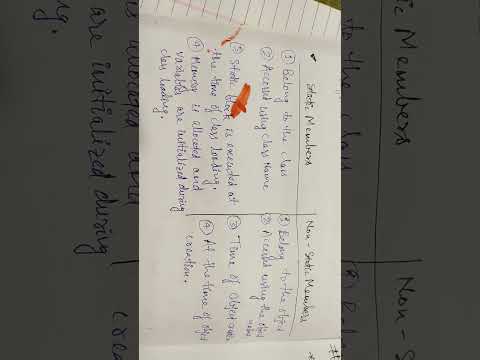 Static Members
① Belong to the class
② Accessed using class Name
③ Static block is executed at
the time of class loading.
④ Memory is allocated and
variables are initialized during
class loading.
Non-Static Members
① Belong to the object
② Accessed using the object
③ Time of object
④ At the time of object
creation.